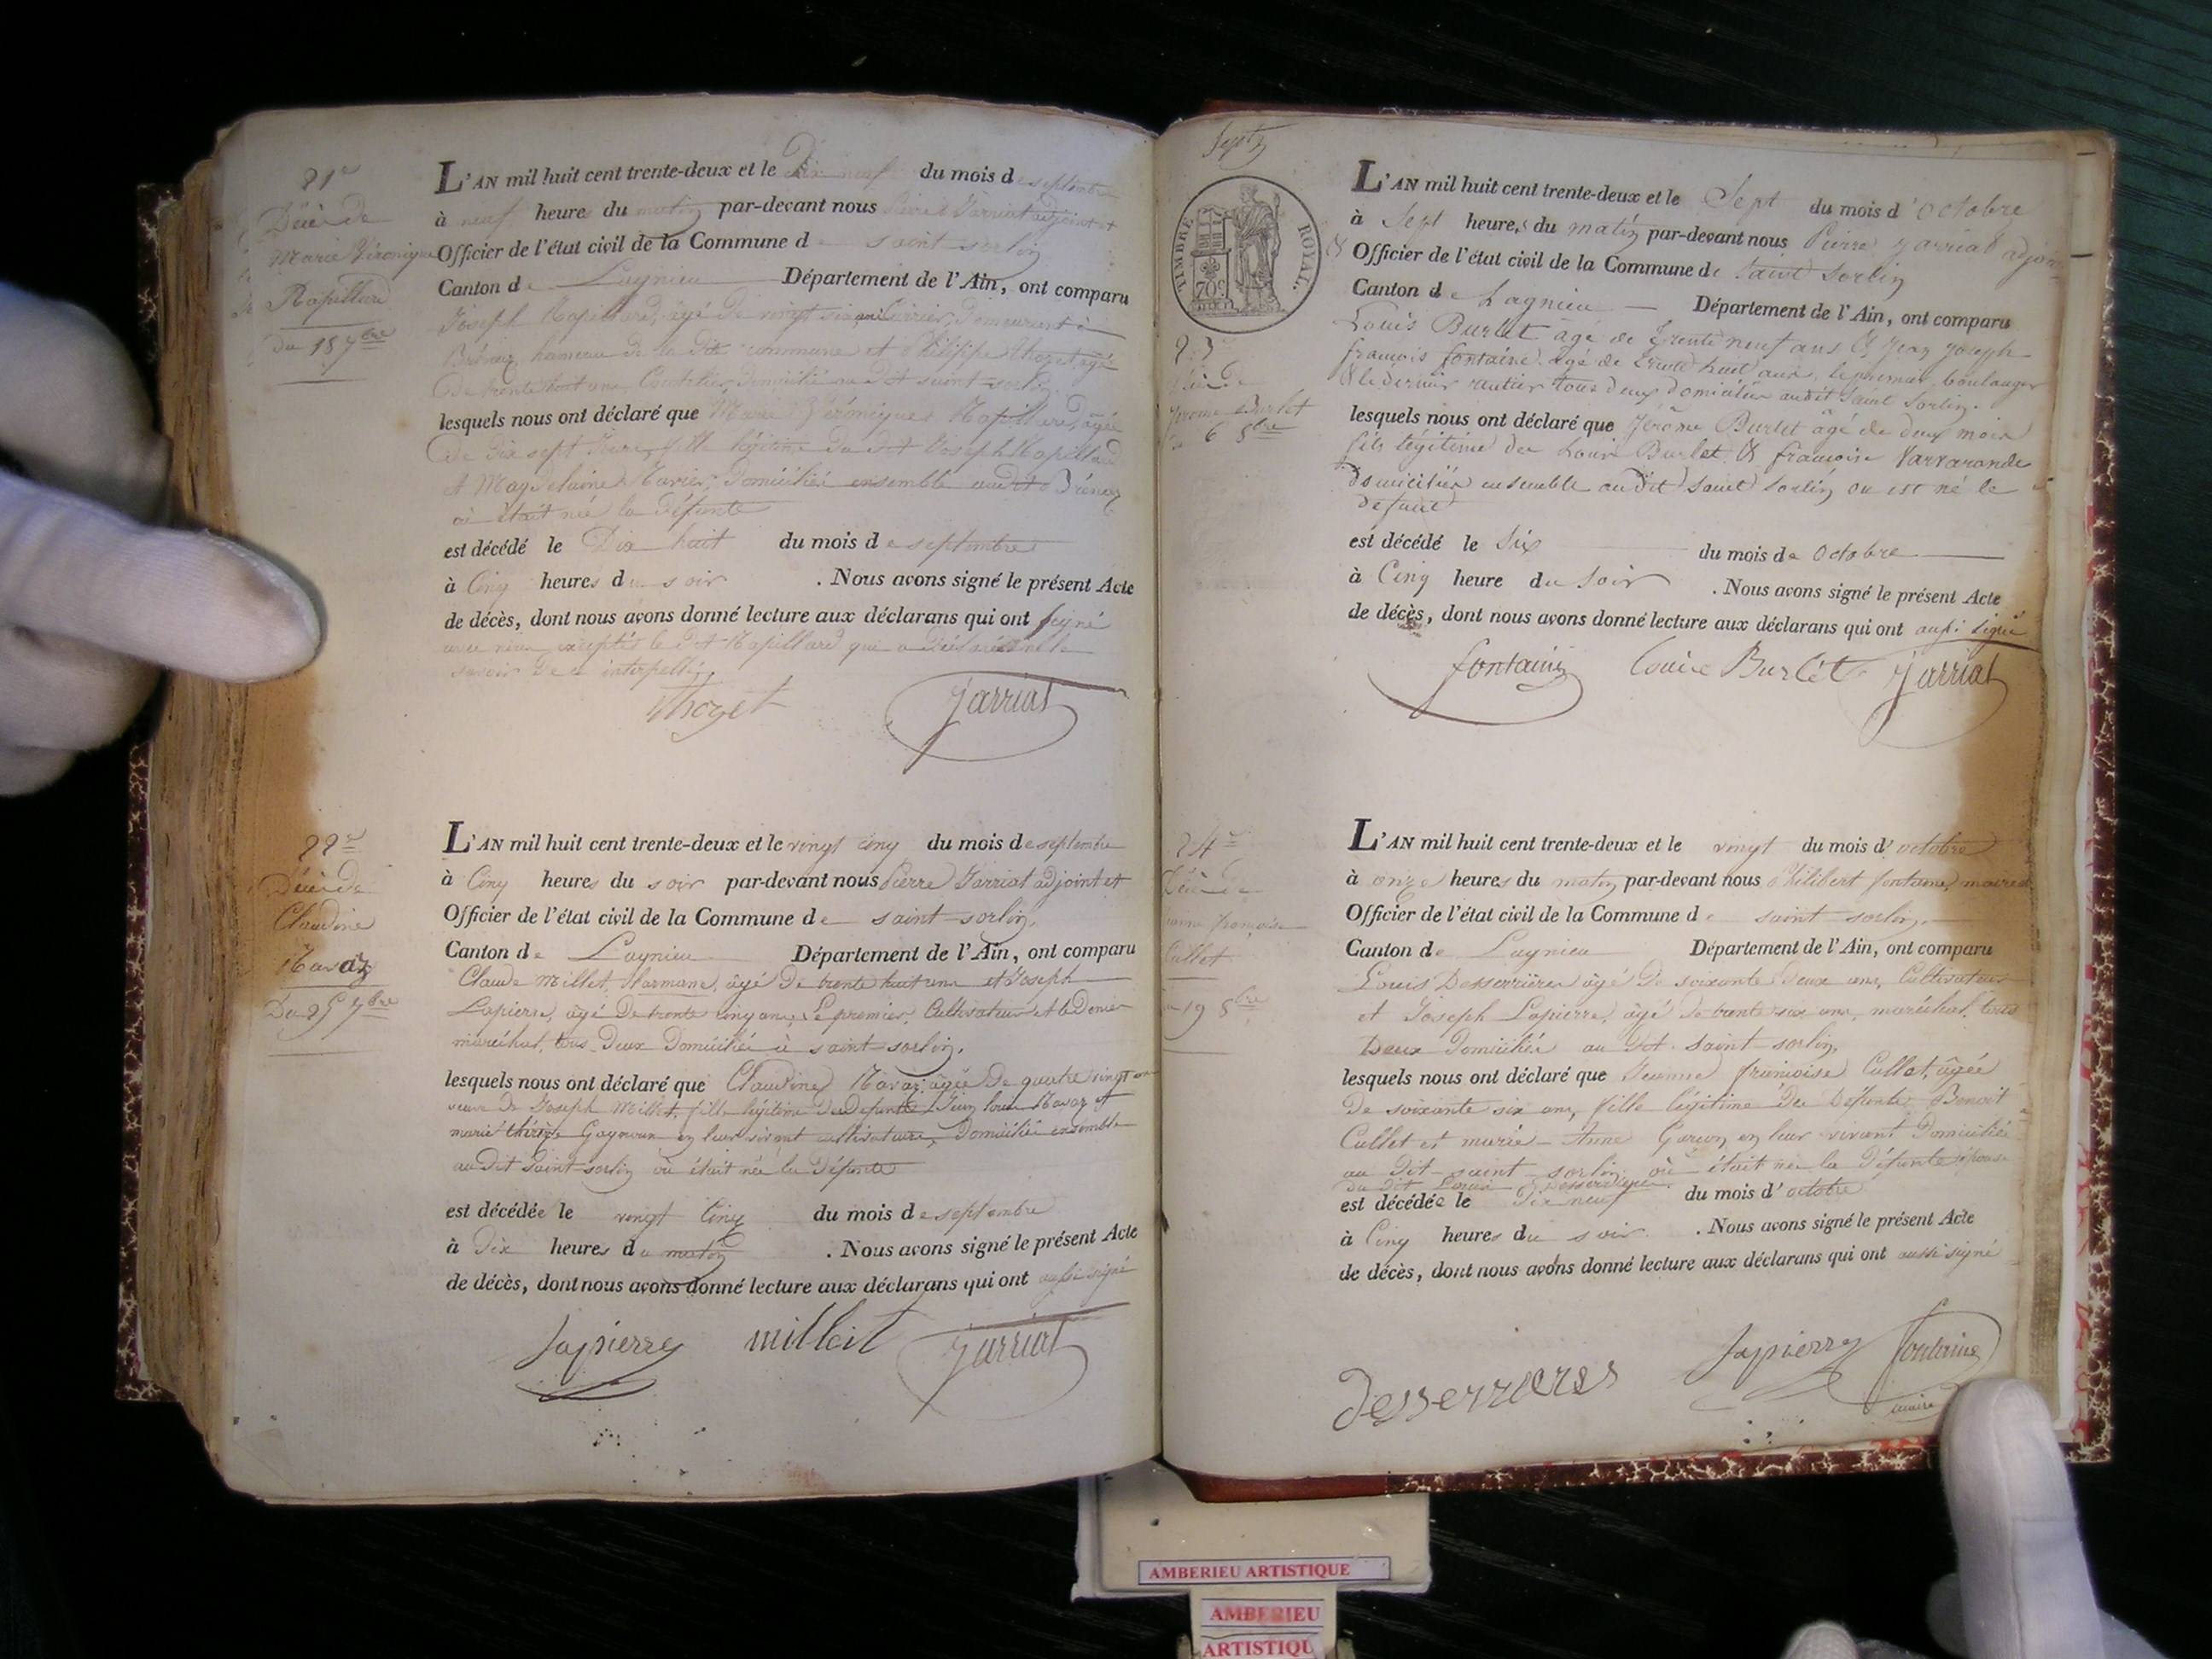 21e
Décès de
Marie Véronique
Rapillard
Du 18 7bre
L'AN mil huit cent trente-deux et le Dix neuf du mois de septembre
à neuf heures du matin par-devant nous Pierre Jarriat adjoint et
Officier de l'état civil de la Commune de saint-sorlin
Canton de Lagnieu Département de l'Ain, ont comparu
Joseph Rapillard, âgé de vingt six ans, demeurant à
hameau de la dite commune et Philippe Thozet âgé
de trente huit ans domicilié au dit saint-sorlin
lesquels nous ont déclaré que Marie Véronique Rapillard, âgée
de dix sept jours, fille légitime du dit Joseph Rapillard
et Magdelaine domiciliés ensemble audit
où était née la défunte
est décédé le Dix huit du mois de septembre
à Cinq heures du soir . Nous avons signé le présent Acte
de décès, dont nous avons donné lecture aux déclarans qui ont signé
avec nous excepté le dit Rapillard qui a déclaré ne le
savoir de ce interpellé.
Thozet Jarriat
22e
Décès de
Claudine
Ravaz
Du 25 7bre
L'AN mil huit cent trente-deux et le vingt cinq du mois de septembre
à Cinq heures du soir par-devant nous Pierre Jarriat adjoint et
Officier de l'état civil de la Commune de saint-sorlin,
Canton de Lagnieu Département de l'Ain, ont comparu
Claude Millet, âgé de trente huit ans et Joseph
Lapierre, âgé de trente cinq ans, Le premier, Cultivateur et le Dernier
maréchal, tous Deux Domiciliés à saint-sorlin,
lesquels nous ont déclaré que Claudine Ravaz, âgée de quatre vingt
veuve de Joseph Millet, fille légitime des Défunts Jean Louis Ravaz et
marie thérèse en leur vivant cultivateurs, Domiciliés ensemble
au dit Saint-sorlin où était née la Défunte
est décédée le vingt Cinq du mois de septembre
à Dix heures du matin . Nous avons signé le présent Acte
de décès, dont nous avons donné lecture aux déclarans qui ont aussi signé
Lapierre milleit Jarriat
Sept
TIMBRE ROYAL.
70c
23
Décès de
Jérôme Burlet
Du 6 8bre
L'AN mil huit cent trente-deux et le Sept du mois d'Octobre
à Sept heures du matin par-devant nous Pierre Jarriat adjoint
& Officier de l'état civil de la Commune de Saint Sorlin
Canton de Lagnieu Département de l'Ain, ont comparu
Louis Burlet agé de trente neuf ans & Jean Joseph
françois fontaine agé de trente huit ans, le premier boulanger
& le dernier rentier tous deux domiciliés audit Saint Sorlin.
lesquels nous ont déclaré que Jérôme Burlet âgé de deux mois
fils légitime de Louis Burlet & françoise Varvarande
domiciliés ensemble audit saint Sorlin ou est né le
defunt
est décédé le Six du mois de Octobre
à Cinq heure du Soir . Nous avons signé le présent Acte
de décès, dont nous avons donné lecture aux déclarans qui ont aussi signé
fontaine Louis Burlet Jarriat
24e
Décès de
Jeanne françoise
Cullet
Du 19 8bre
L'AN mil huit cent trente-deux et le vingt du mois d'octobre
à onze heures du matin par-devant nous Philibert fontaine, maire et
Officier de l'état civil de la Commune de saint sorlin,
Canton de Lagnieu Département de l'Ain, ont comparu
Louis Desserrières âgé de soixante deux ans, Cultivateur
et Joseph Lapierre, âgé de trente six ans, maréchal, tous
Deux Domiciliés au dit saint-sorlin,
lesquels nous ont déclaré que Jeanne françoise Cullet, âgée
De soixante six ans, fille légitime des Défunts Benoit
Cullet et marie-Anne Garçon en leur vivant Domiciliés
au dit saint sorlin où était née la Défunte épouse
du dit Louis Desserrières
est décédée le Dix neuf du mois d'octobre
à Cinq heures du soir . Nous avons signé le présent Acte
de décès, dont nous avons donné lecture aux déclarans qui ont aussi signé
Desserrieres Lapierre fontaine
maire
AMBERIEU ARTISTIQUE
AMBERIEU
ARTISTIQU